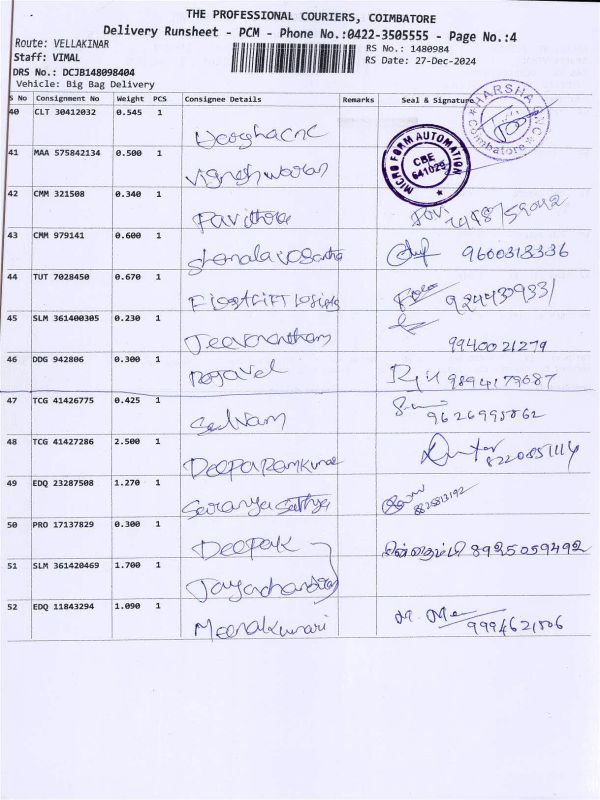 THE PROFESSIONAL COURIERS, COIMBATORE
Delivery Runsheet - PCM - Phone No.:0422-3505555 - Page No.:4
Route: VELLAKINAR
RS No.: 1480984
Staff: VIMAL
RS Date: 27-Dec-2024
DRS No.: DCJB148098404
Vehicle: Big Bag Delivery
S No Consignment No Weight PCS Consignee Details Remarks Seal & Signature
40 CLT 30412032 0.545 1 Harsha cnc
HARSHA CNC Coimbatore
41 MAA 575842134 0.500 1 Vigneshwaran
MICRO FORM AUTOMATION CBE 641029
42 CMM 321508 0.340 1 Pavithra
43 CMM 979141 0.600 1 9600318336
44 TUT 7028450 0.670 1
45 SLM 361400305 0.230 1 Jeevanantham 9940021279
46 DDG 942806 0.300 1 9894179687
47 TCG 41426775 0.425 1 Selvam
48 TCG 41427286 2.500 1 Deepa Ramkumar
49 EDQ 23287508 1.270 1 Saranya Sathya 8825813192
50 PRO 17137829 0.300 1 Deepak 8925059492
51 SLM 361420469 1.700 1
52 EDQ 11843294 1.090 1 Meenakumari